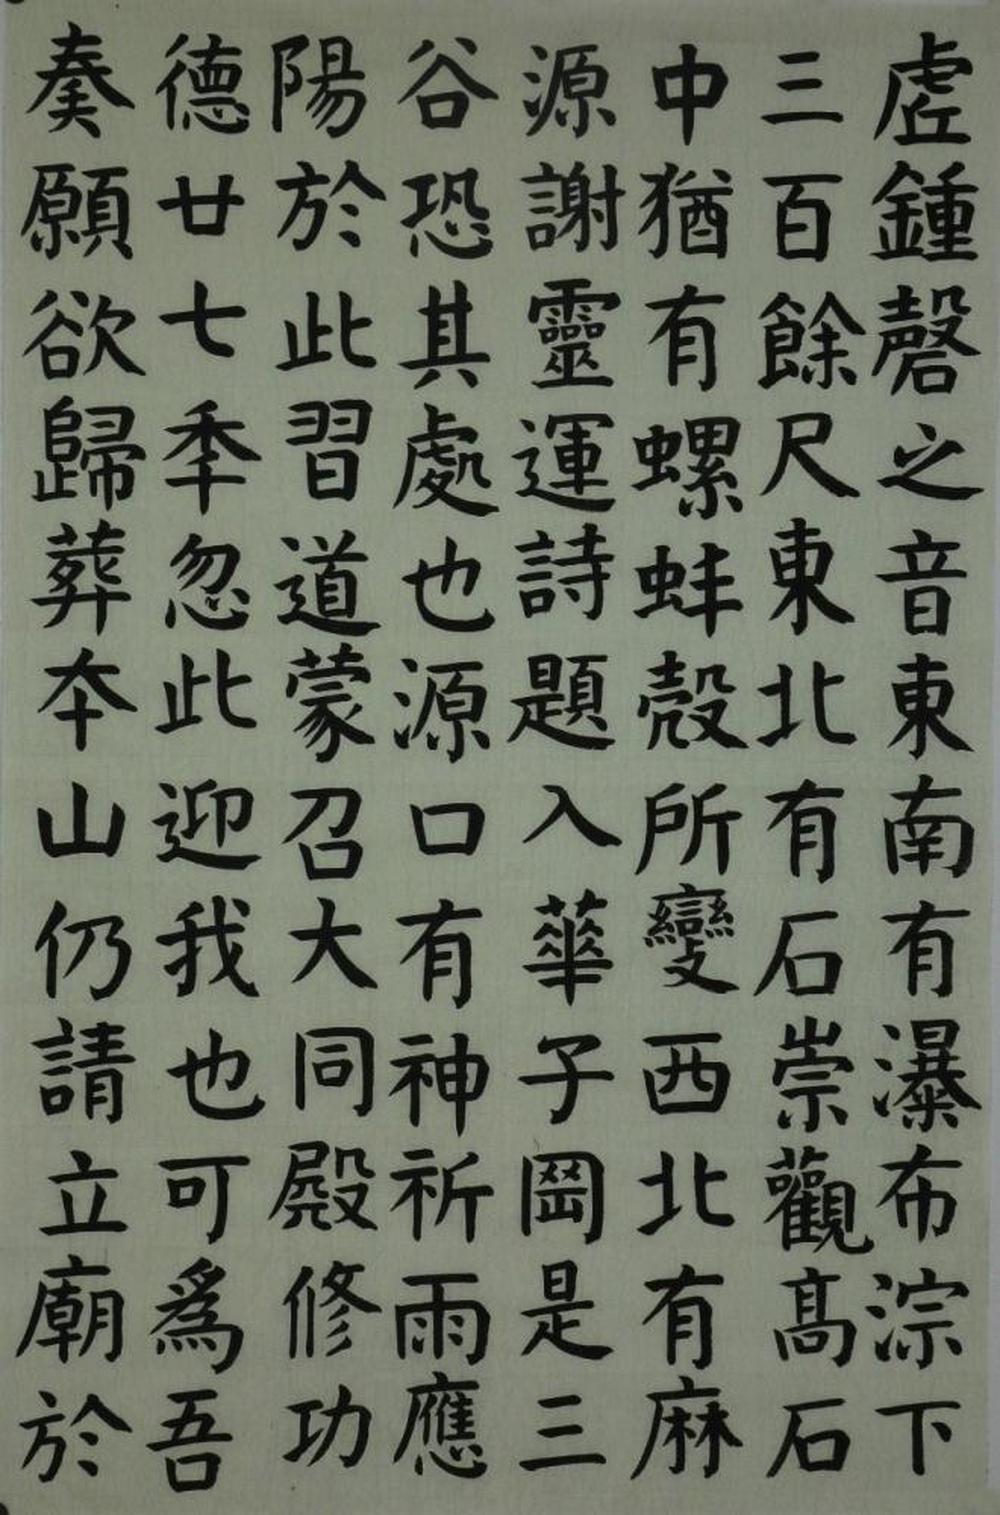 虗鍾磬之音東南有瀑布淙下
三百餘尺東北有石崇觀髙石
中猶有螺蚌殼所變西北有麻
源謝靈運詩題入華子岡是三
谷恐其處也源口有神祈雨應
陽於此習道蒙召大同殿修功
德廿七季忽此迎我也可爲吾
奏願欲歸葬夲山仍請立廟於